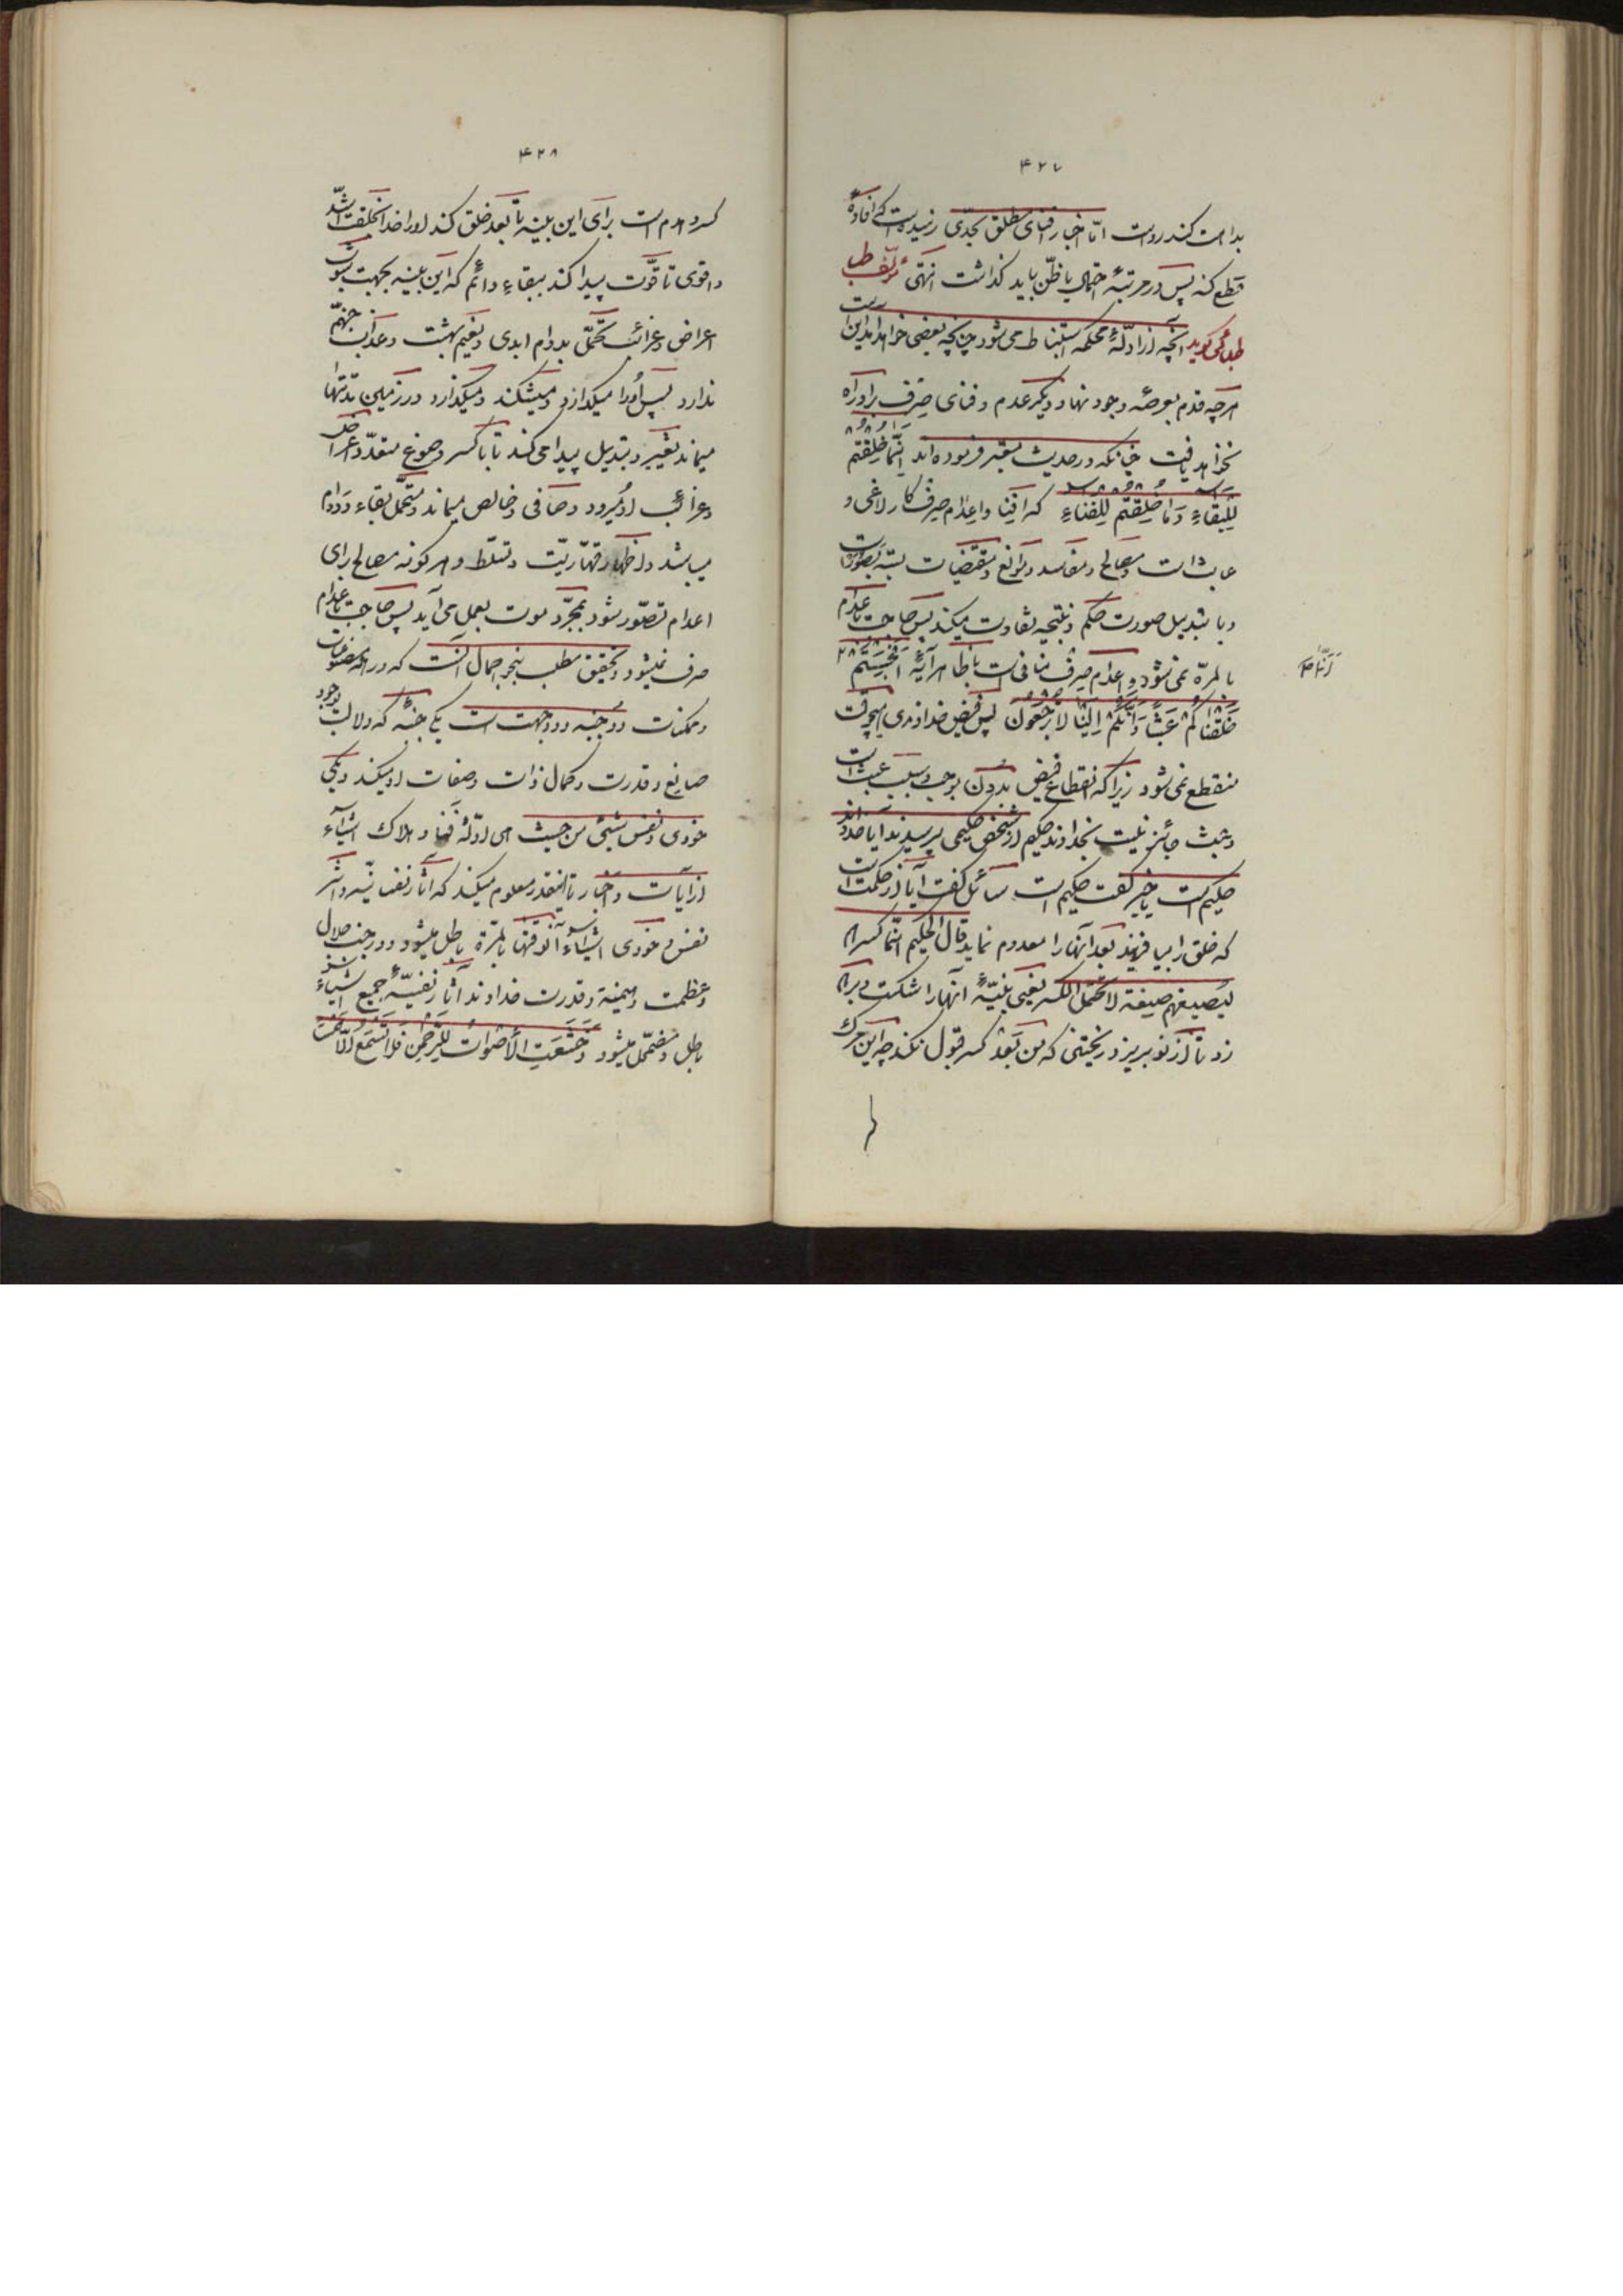 ۴۲۷
بداهت کند رواست اما اخبار فنای مطلق بحدی نرسیده است که افادهٔ
قطع کند پس در مرتبهٔ احتمال یا ظن باید گذاشت انتهی مؤلف
گوید آنچه از ادلهٔ محکمه استنباط می‌شود چنانچه بعضی خواهد آمد این است
هرچه قدم بعرصه وجود نهاد دیگر عدم و فنای صرف براو راه
نخواهد یافت چنانکه در حدیث معتبر فرموده‌اند اِنَّما خُلِقْتُم
لِلْبَقاءِ وَما خُلِقْتُم لِلْفَناءِ که افنا و اعدام صرف کار لاغی و
عابث است و مصالح و مفاسد و موانع و مقتضیات بسته بصورت است
و با تبدیل صورت حکم و نتیجه تفاوت میکند پس حاجت باعدام
بالمرّه نمی‌شود و اعدام صرف منافی است با ظاهر آیهٔ اَفَحَسِبْتُمْ اَنَّما
خَلَقْناکُمْ عَبَثًا وَاَنَّکُمْ اِلَیْنا لا تُرْجَعُونَ پس فیض خداوندی هیچوقت
منقطع نمی‌شود زیرا که انقطاع فیض بدون موجب و سبب عبث است
و عبث جائز نیست بخداوند حکیم از شخص حکیمی پرسیدند آیا خداوند
حکیم است یا خیر گفت حکیم است سائل گفت آیا از حکمت است
که خلق را بیافریند بعد آنها را معدوم نماید قال الحکیم انّما کسرهم
لیصیغهم صیغة لا تحتمل الکسر یعنی بنیهٔ آنها را شکست و برهم
زد تا از نو بریزد ریختنی که من بعد کسر قبول نکند چه این
۴۲۸
کسر و هدم است برای این بنیه تا بعد خلق کند او را خلقت اشدّ
و اقوی تا قوّت پیدا کند ببقاء دائم که این بنیه بجهت شوب
اعراض و غرائب تحمّل بدوام ابدی و نعیم بهشت و عذاب جهنّم
ندارد پس او را میگدازد و میشکند و میگذارد در زمین مدّتها
میماند تغییر و تبدیل پیدا می‌کند تا با کسر و صوغ متعدّد اعراض
و غرائب او میرود و صافی و خالص میماند و متحمّل بقاء و دوام
میباشد و اظهار قهّاریّت و تسلّط و هر گونه مصالح برای
اعدام تصوّر شود بمجرّد موت بعمل می‌آید پس حاجت باعدام
صرف نمیشود و تحقیق مطلب بنحو اجمال آنست که در مصنوعات
و ممکنات دو جنبه و دو جهت است یکی جنبهٔ که دلالت بوجود
صانع و قدرت و کمال ذات و صفات او میکند و یکی
خودی و نفس شیئی من حیث هی ادلّهٔ فنا و هلاک اشیاء
از آیات و اخبار تا اینقدر معلوم میکند که آثار نفسانیّه و اثر
نفس و خودی اشیاء آنوقتها بالمرّة باطل میشود و در جنب جلال
و عظمت و هیمنة و قدرت خداوند آثار نفسیّهٔ جمیع اشیاء
باطل و مضمحل میشود وَخَشَعَتِ الاَصْواتُ لِلرَّحْمنِ فَلا تَسْمَعُ اِلّا هَمْسًا